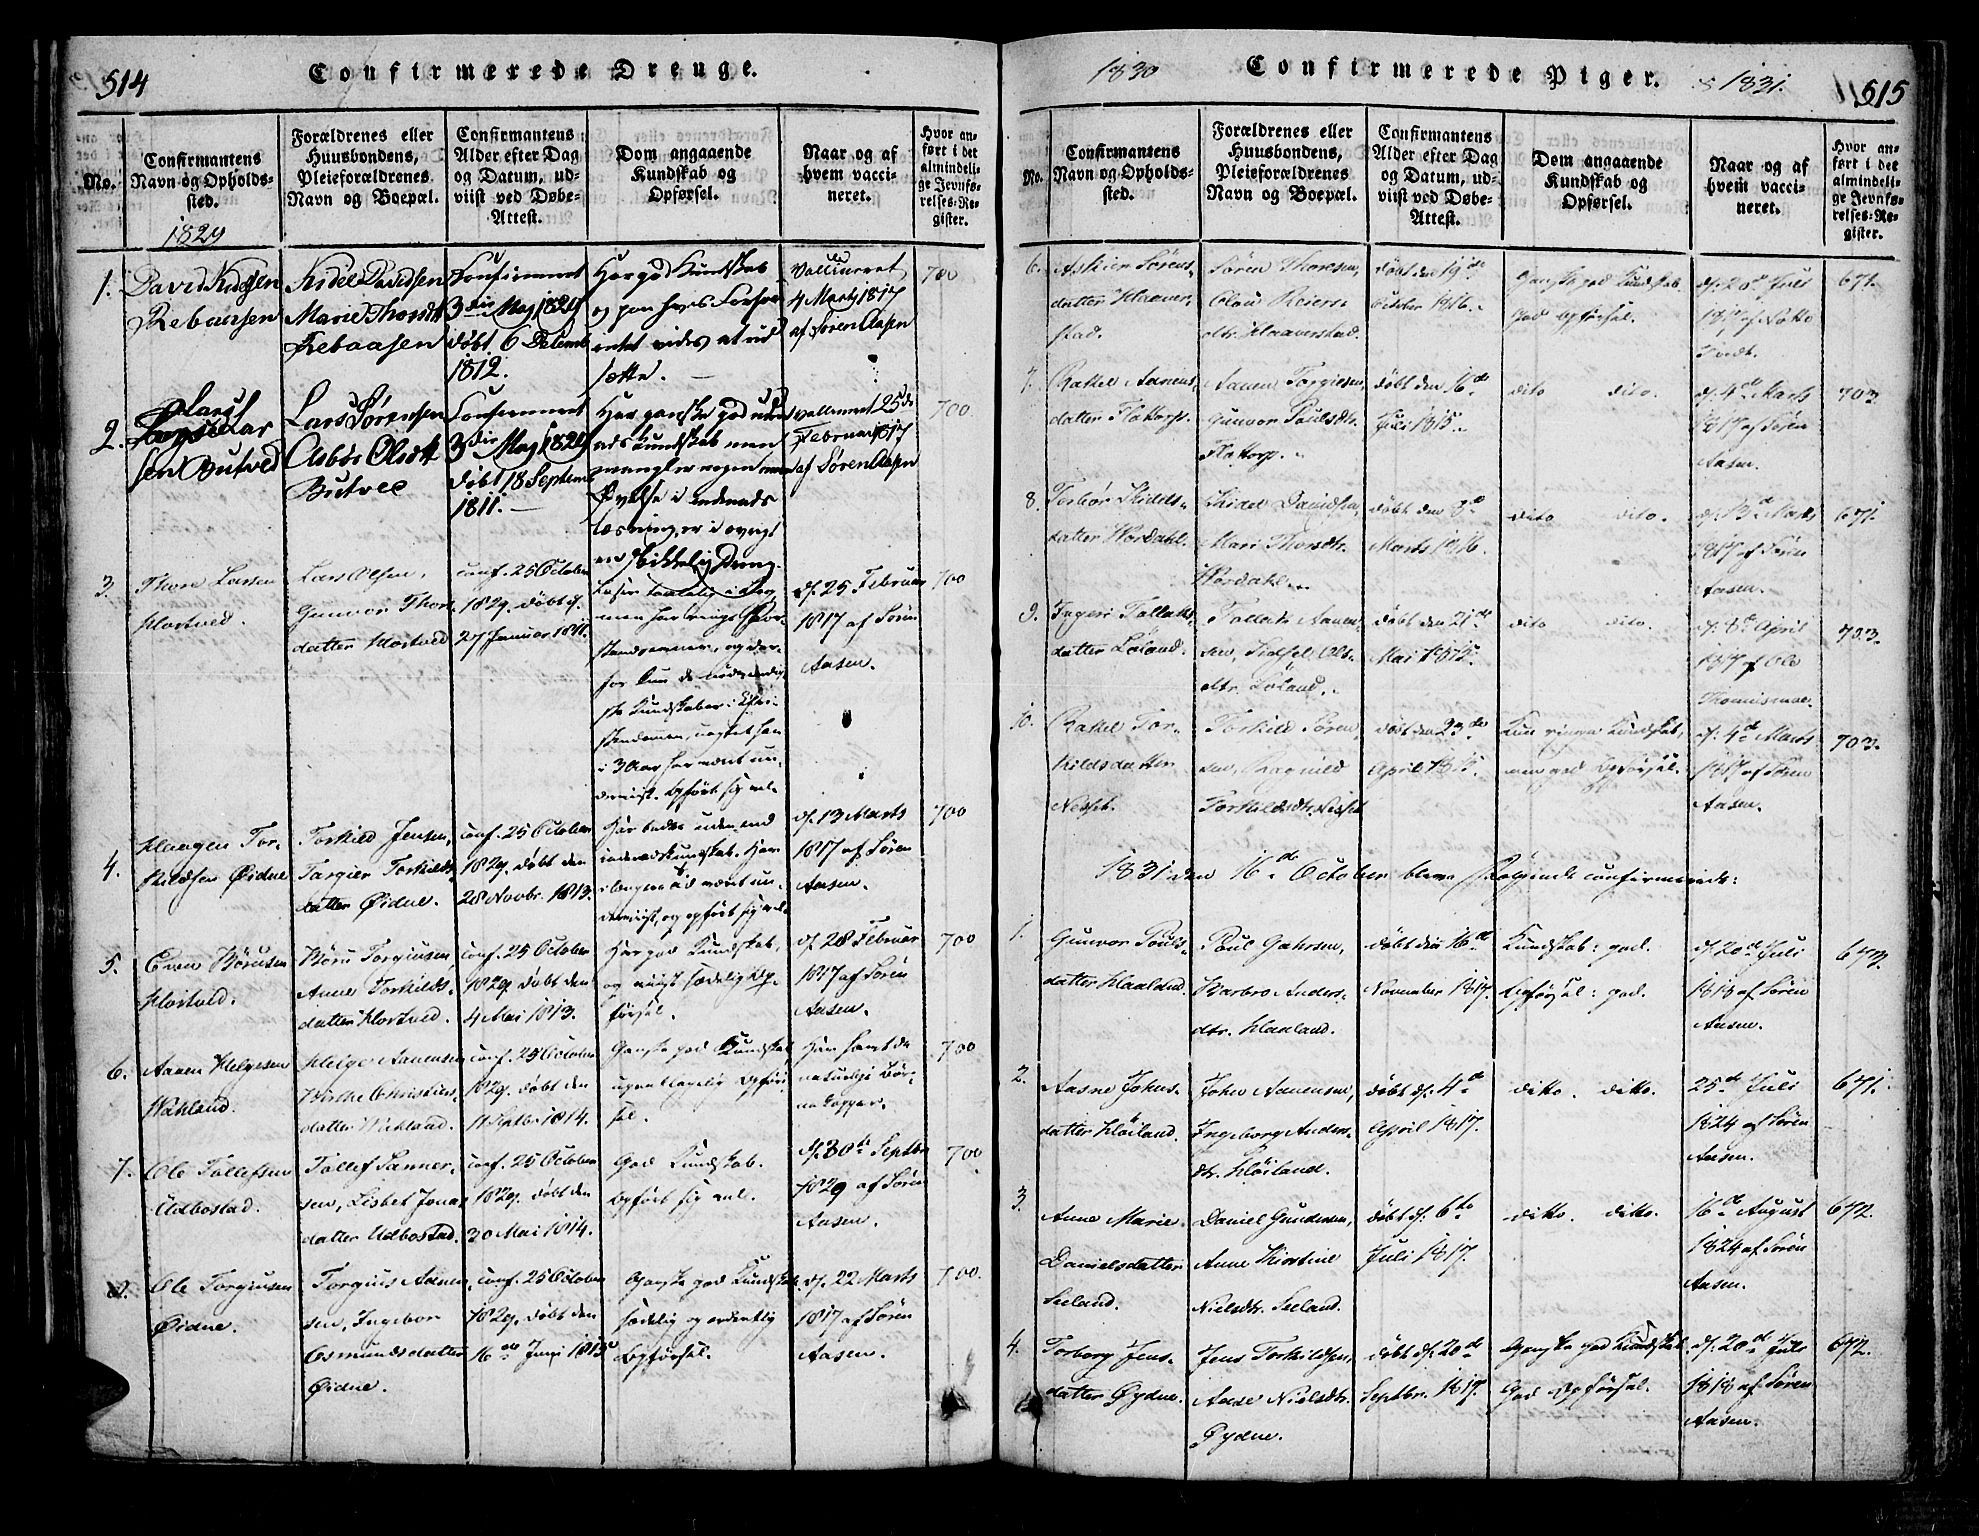 514
Confirmerede Drenge.
No.
Confirmantens
Navn og Opholds-
sted.
Forældrenes eller
Huusbondens,
Pleieforældrenes
Navn og Boepæl.
Confirmantens
Alder efter Dag
og Datum, ud-
viist ved Døbe-
Attest.
Dom angaaende
Kundskab og
Opførsel.
Naar og af
hvem vacci-
neret.
Hvor an-
ført i det
almindeli-
ge Jevnfø-
relses-Re-
gister.
1829
1.
David
Rebaasen
Kidel Davidsen
Marie Thorsdtr
Rebaasen
Confirmeret
3die Maj 1829
døbt 6 Decemb
1812.
Har god Kundskab
og paa hans
vides at ud
sætte.
Vaccineret
4 Marts 1817
af Søren Aasen
700
2.
Lars
Lars
sen Butved
Lars Sørensen
Asbør Olsdtr
Butved
Confirmeret
3die Maj 1829
døbt 18 Septemb
1811.
Har ganske god uden
ads kundskab men
mangler nogen
Øvelse i indenads
læsning, er i øvrigt
en skikkelig Dreng.
vaccineret 25de
Februar 1817
af Søren Aasen
700
3.
Thore Larsen
Hortved.
Lars Olsen,
Gunvor Thors
datter Hortved
conf. 25 October
1829. døbt d.
27 Januar 1811.
Læser temmelig i Bog,
men har ringe For-
standsevner, og der-
for kun de nødvendig-
ste Kundskaber i Chri-
stendommen, uagtet han
i 3 Aar har været un-
derviist. Opført sig vel.
d. 25 Februar
1817 af Søren
Aasen.
700
4.
Haagen Tor-
kildsen Øidne
Torkild Jensen,
Targier Torkilds-
datter Øidne.
conf. 25 October
1829. døbt den
28 Novbr. 1813.
Har bedre uden end
indenadskundskab. Har
i længere Tid været un-
derviist, og opført sig vel.
d. 13 Marts
1817 af Søren
Aasen.
700
5.
Even Børusen
Hortved.
Børu Torgiusen,
Anne Torkilds-
datter Hortved.
conf. 25 October
1829. døbt den
4 Mai 1813.
Har god Kundskab,
og viist sædelig Op-
førsel.
d. 28 Februar
1817 af Søren
Aasen.
700
6.
Aanen Helgesen
Wahland.
Helge Aanensen
Christens-
datter Wehland.
conf. 25 October
1829. døbt den
11 Septbr 1814.
Ganske god Kundskab
upaaklagelig Opfør-
sel.
Har havt de
naturlige Bør-
nekopper.
700
7.
Ole Tollefsen
Udbostad.
Tollef Sanner-
sen, Lisbet Jona-
datter Udbostad.
conf. 25 October
1829. døbt den
30 Mai 1814.
God Kundskab.
Opført sig vel.
d. 30te Septbr
1829 af Søren
Aasen.
700
8.
Ole Torgiusen
Øidne.
Torgius Aanen-
sen, Ingebor
Osmundsdatter
Øidne.
conf. 25 October
1829. døbt den
16de Juni 1813
Ganske god Kundskab
sædelig og ordentlig
Opførsel.
d. 22 Marts
1817 af Søren
Aasen.
700.
1830
Confirmerede Piger.
1831.
515
No.
Confirmantens
Navn og Opholds-
sted.
Forældrenes eller
Huusbondens,
Pleieforældrenes
Navn og Boepæl.
Confirmantens
Alder efter Dag
og Datum, ud-
viist ved Døbe-
Attest.
Dom angaaende
Kundskab og
Opførsel.
Naar og af
hvem vacci-
neret.
Hvor an-
ført i det
almindeli-
ge Jevnfø-
relses-Re-
gister.
6.
Sørens-
datter Haaver-
stad.
Søren Thoresen,
Olau Reiers-
dtr. Haaverstad.
døbt den 19de
October 1816.
Ganske god Kundskab.
God Opførsel.
d. 20de Juli
Tvedt.
671.
7.
Rakel Aanens-
datter Flottorp.
Aanen Torgiesen,
Gunvor Poulsdtr.
Flottorp.
døbt den 16de
Juli 1815.
dito dito.
d. 4de Marts
1817 af Søren
Aasen.
703.
8.
Torbør Kidels-
datter Wordahl.
Kidel Davidsen
Mari Thorsdtr.
Wordahl.
døbt den 3de
Marts 1816.
dito dito.
d. 13de Marts
1817 af Søren
Aasen.
671.
9.
Ingeri Tallaks-
datter Løland.
Tallak Aanen-
sen, Sidsel Ols-
dtr. Løland.
døbt den 21de
Mai 1815.
dito dito.
d. 8de April
1817 af Ole
703.
10.
Rakel Tor-
kildsdatter
Nesset.
Torkild Søren-
sen, Ragnild
Torkildsdtr. Nesset
døbt den 23de
April 1815.
Kun ringe Kundskab,
men god Opførsel.
d. 4de Marts
1817 af Søren
Aasen.
703.
1831 den 16de October bleve følgende confirmerede:
1.
Gunvor Pouls-
datter Haaland.
Poul Gahrsen,
Barbro Anders-
dtr. Haaland.
døbt den 16de
November 1817.
Kundskab: god.
Opførsel: god.
d. 20de Juli
1818 af Søren
Aasen.
673.
2.
Aasne Johns-
datter Høiland.
John Aanensen,
Ingeborg Anders-
dtr. Høiland.
døbt d. 4de
April 1817.
ditto. ditto.
25de Juli
1824 af Søren
Aasen.
671.
3.
Anne Marie
Danielsdatter
Seeland.
Daniel Gundersen,
Anne Kirstine
Nielsdtr. Seeland.
døbt d. 6te
Juli 1817.
ditto. ditto.
16de August
1824 af Søren
Aasen.
672.
4.
Torborg Jens-
datter Øydne.
Jens Torkildsen,
Aase Nielsdtr.
Øydne.
døbt d. 20de
Septbr. 1817.
Ganske god Kundskab.
God Opførsel.
d. 20de Juli
1818 af Søren
Aasen.
672.